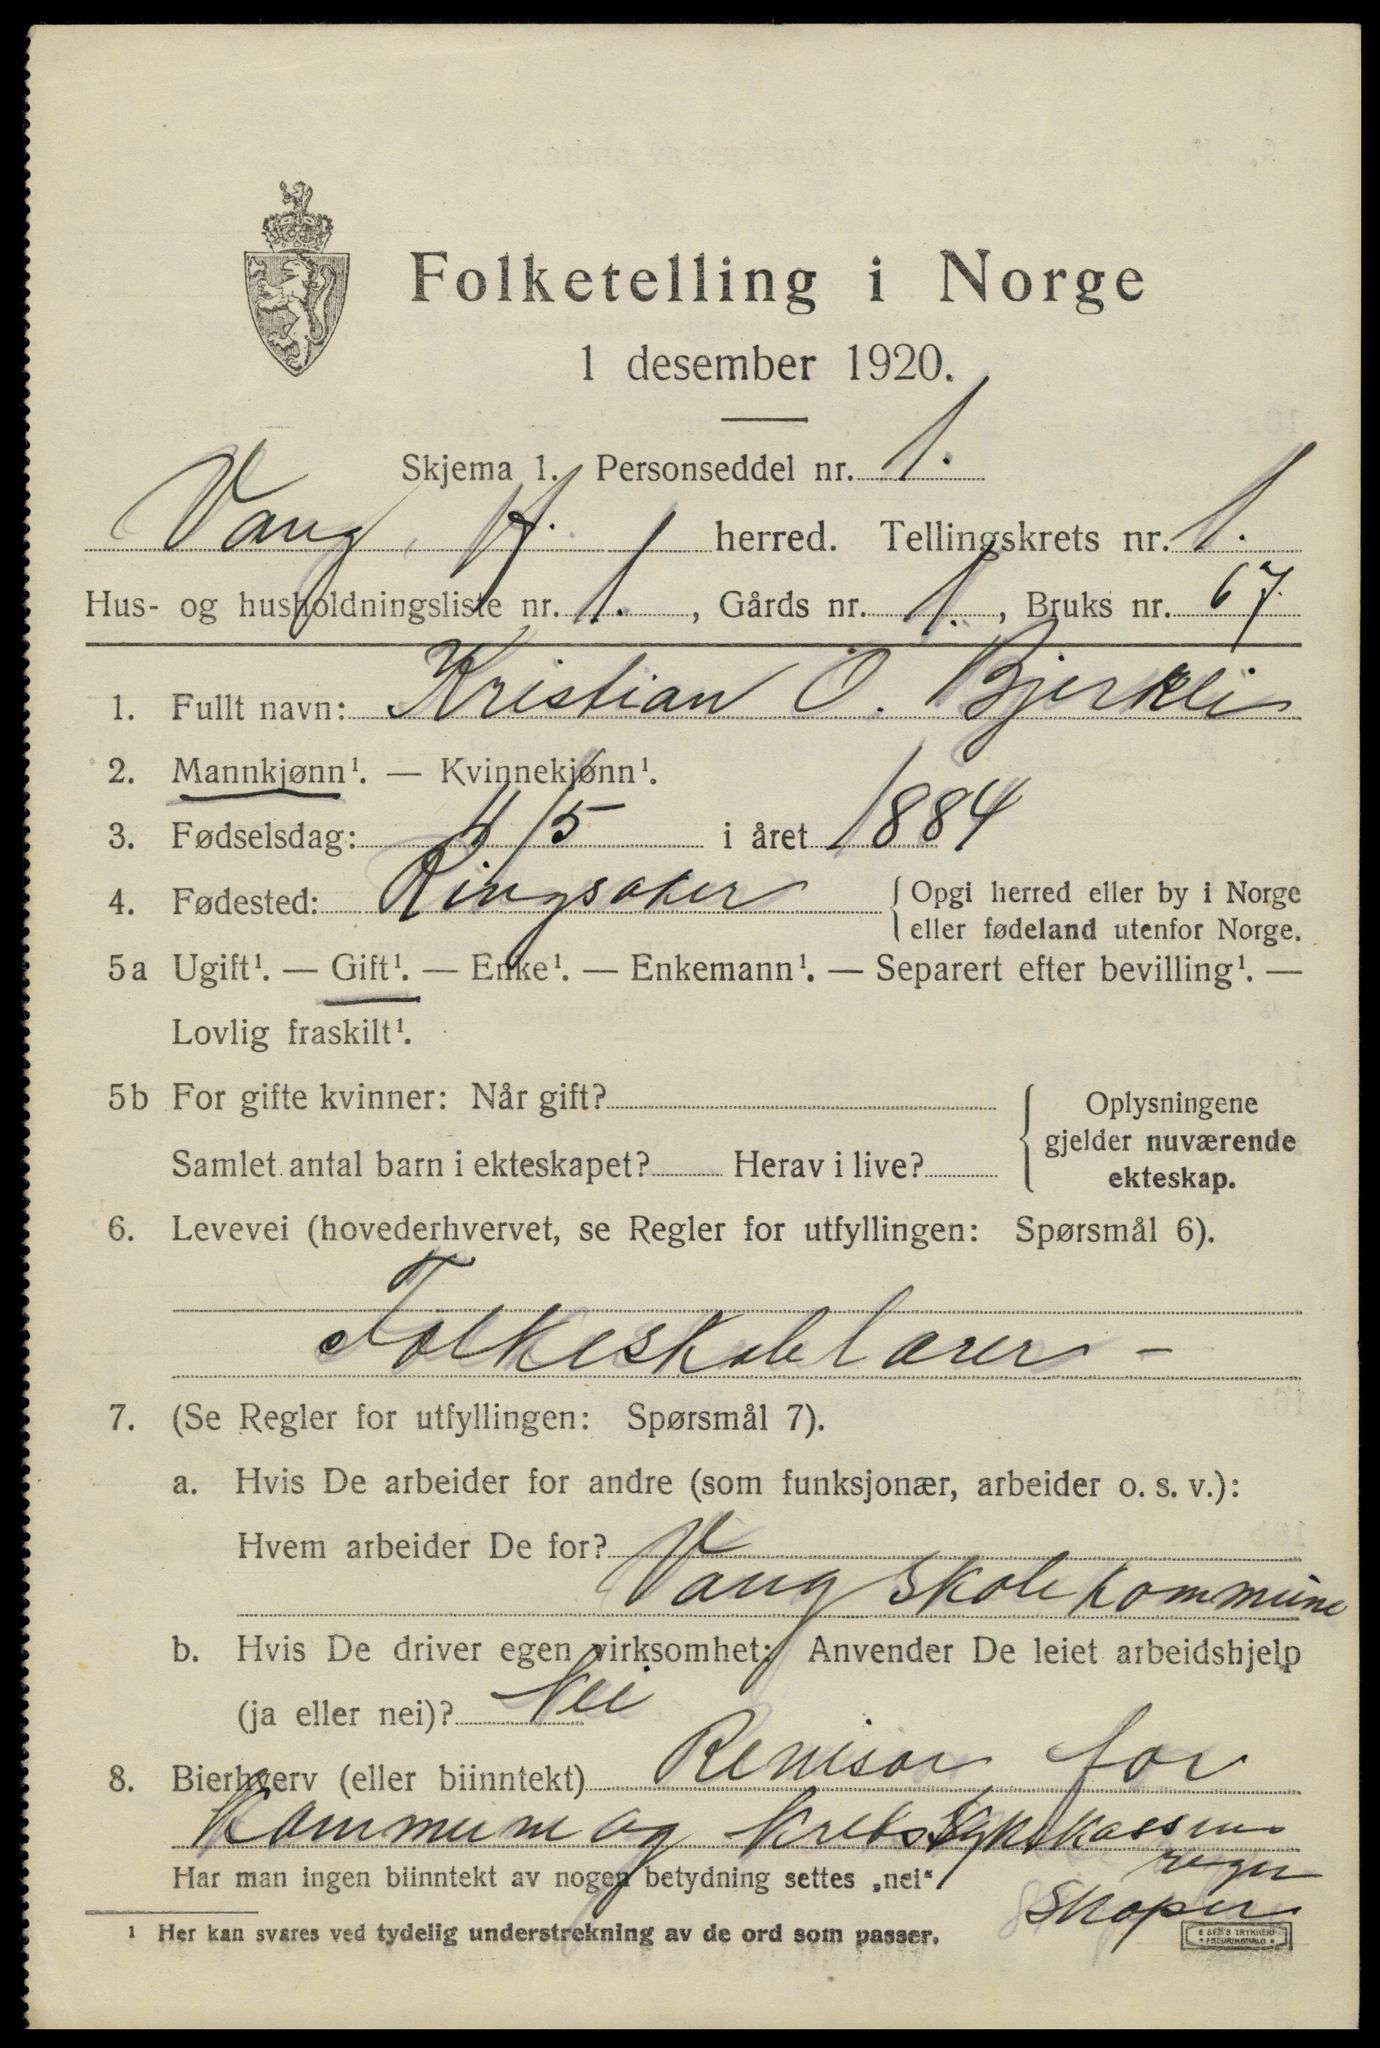 Folketelling i Norge
1 desember 1920.
Skjema 1. Personseddel nr. 1.
Vang, H. herred. Tellingskrets nr. 1.
Hus- og husholdningsliste nr. 1., Gårds nr. 1., Bruks nr. 67
1. Fullt navn: Kristian O. Bjerkli
2. Mannkjønn¹. — Kvinnekjønn¹.
3. Fødselsdag: 4/5 i året 1884
4. Fødested: Ringsaker { Opgi herred eller by i Norge
eller fødeland utenfor Norge.
5a Ugift¹. — Gift¹. — Enke¹. — Enkemann¹. — Separert efter bevilling¹. —
Lovlig fraskilt¹.
5b For gifte kvinner: Når gift?
Samlet antal barn i ekteskapet? Herav i live?
{ Oplysningene
gjelder nuværende
ekteskap.
6. Levevei (hovederhvervet, se Regler for utfyllingen: Spørsmål 6).
Folkeskolelærer –
7. (Se Regler for utfyllingen: Spørsmål 7).
a. Hvis De arbeider for andre (som funksjonær, arbeider o. s. v.):
Hvem arbeider De for?
Vang skolekommune
b. Hvis De driver egen virksomhet: Anvender De leiet arbeidshjelp
(ja eller nei)? Nei
8. Bierhverv (eller biinntekt) Revisor for
Kommune og kretssykekassen
regn
skaper
Har man ingen biinntekt av nogen betydning settes „nei“
¹ Her kan svares ved tydelig understrekning av de ord som passer.